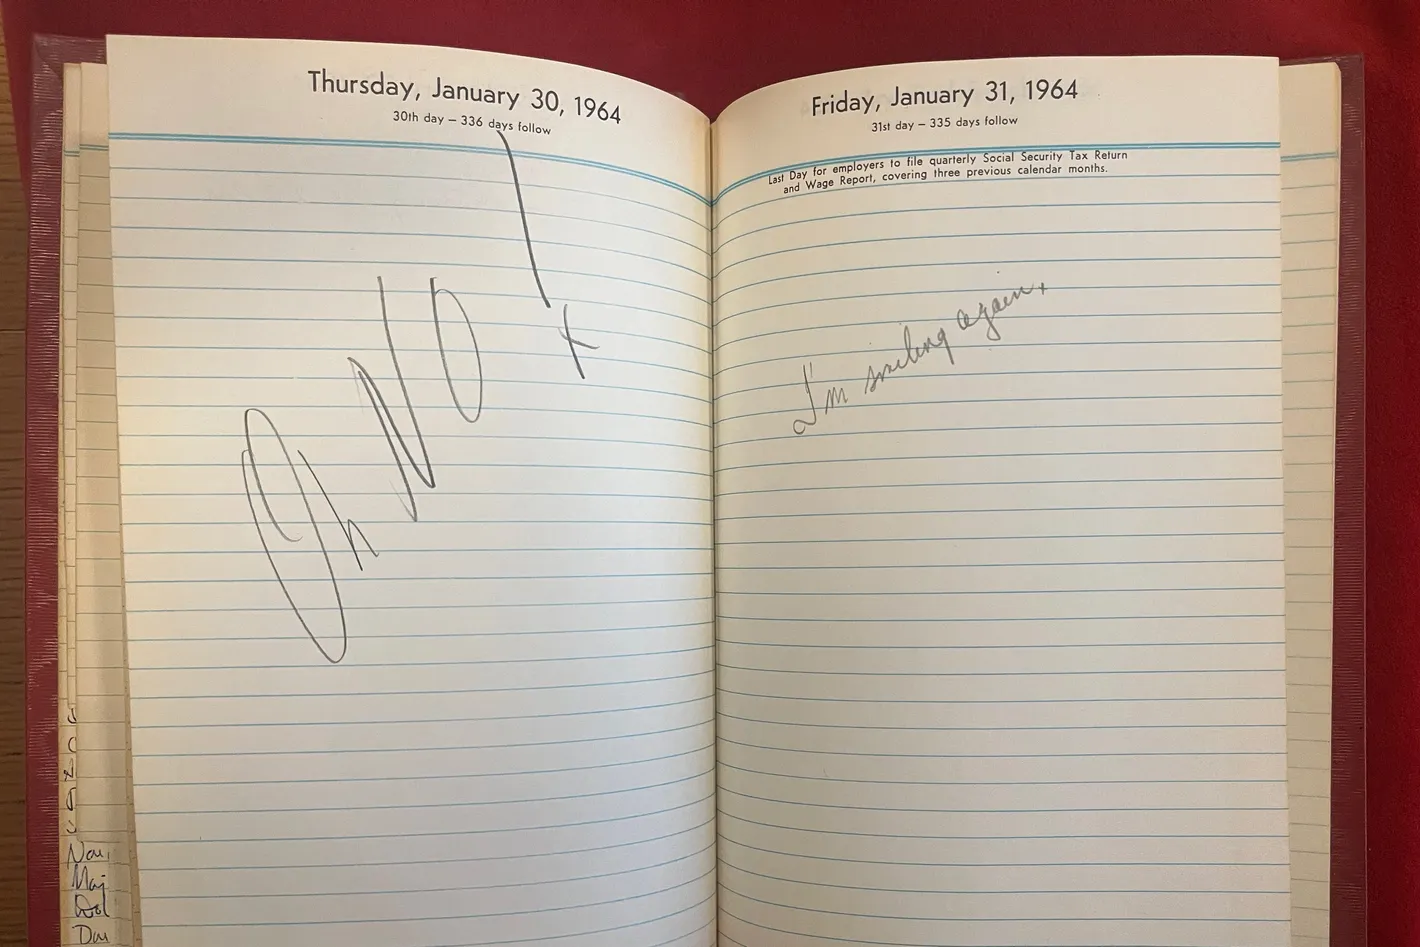 Thursday, January 30, 1964
30th day – 336 days follow
Oh NO!
Friday, January 31, 1964
31st day – 335 days follow
Last Day for employers to file quarterly Social Security Tax Return
and Wage Report, covering three previous calendar months.
I'm smiling again.
Nov,